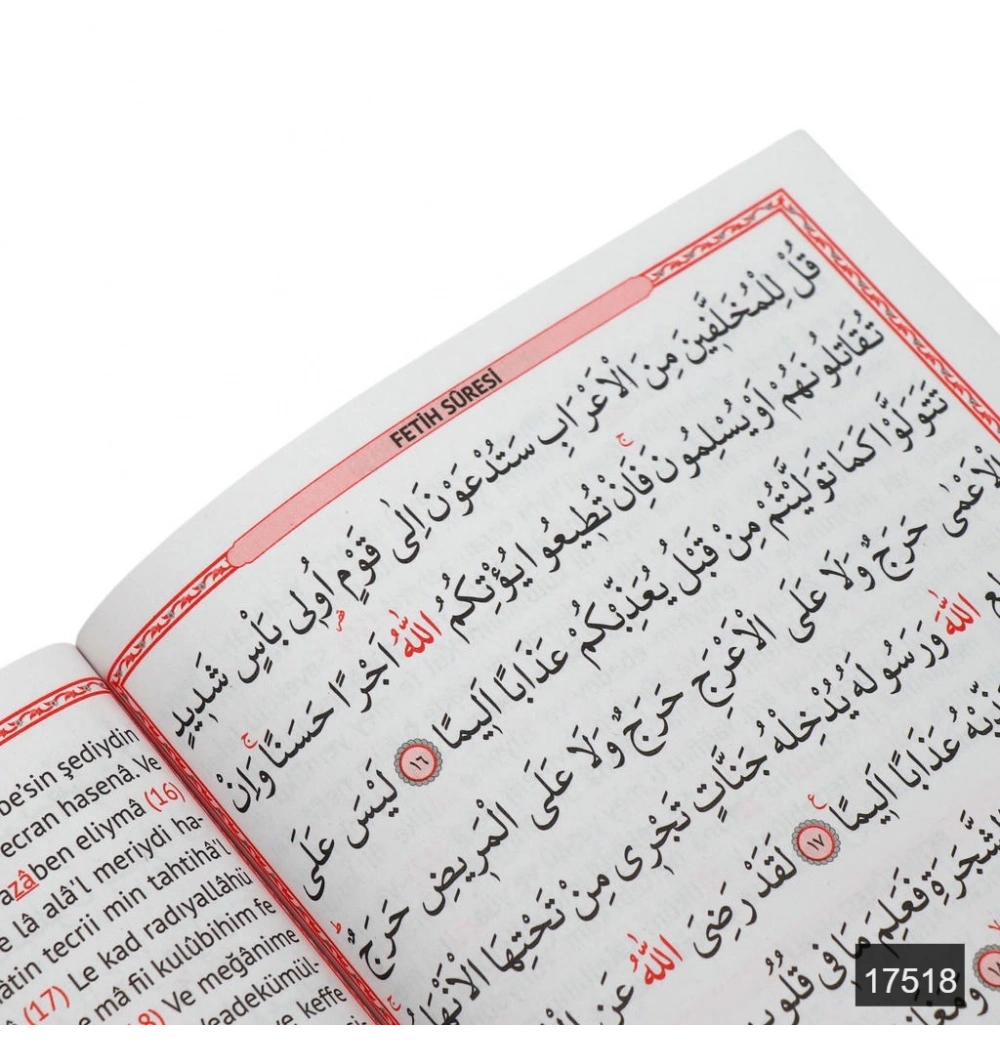 FETİH SÛRESİ
قُلْ لِلْمُخَلَّفِينَ مِنَ الْاَعْرَابِ سَتُدْعَوْنَ اِلٰى قَوْمٍ اُولٖى بَاْسٍ شَدٖيدٍ
تُقَاتِلُونَهُمْ اَوْ يُسْلِمُونَ فَاِنْ تُطٖيعُوا يُؤْتِكُمُ اللّٰهُ اَجْرًا حَسَنًا وَاِنْ
تَتَوَلَّوْا كَمَا تَوَلَّيْتُمْ مِنْ قَبْلُ يُعَذِّبْكُمْ عَذَابًا اَلٖيمًا ﴿١٦﴾ لَيْسَ عَلَى
الْاَعْمٰى حَرَجٌ وَلَا عَلَى الْاَعْرَجِ حَرَجٌ وَلَا عَلَى الْمَرٖيضِ حَرَجٌ
اللّٰهَ وَرَسُولَهُ يُدْخِلْهُ جَنَّاتٍ تَجْرٖى مِنْ تَحْتِهَا الْاَنْهَارُ
عَذَابًا اَلٖيمًا ﴿١٧﴾ لَقَدْ رَضِىَ اللّٰهُ عَنِ
الشَّجَرَةِ فَعَلِمَ مَا فٖى قُلُوبِ
be'sin şediydin
ecran hasenâ. Ve
azâben eliymâ (16)
lâ alâ'l meriydi ha-
tecrii min tahtihâ'l
(17) Le kad radıyallâhü
mâ fii kulûbihim fe
Ve meğânime
keffe
17518